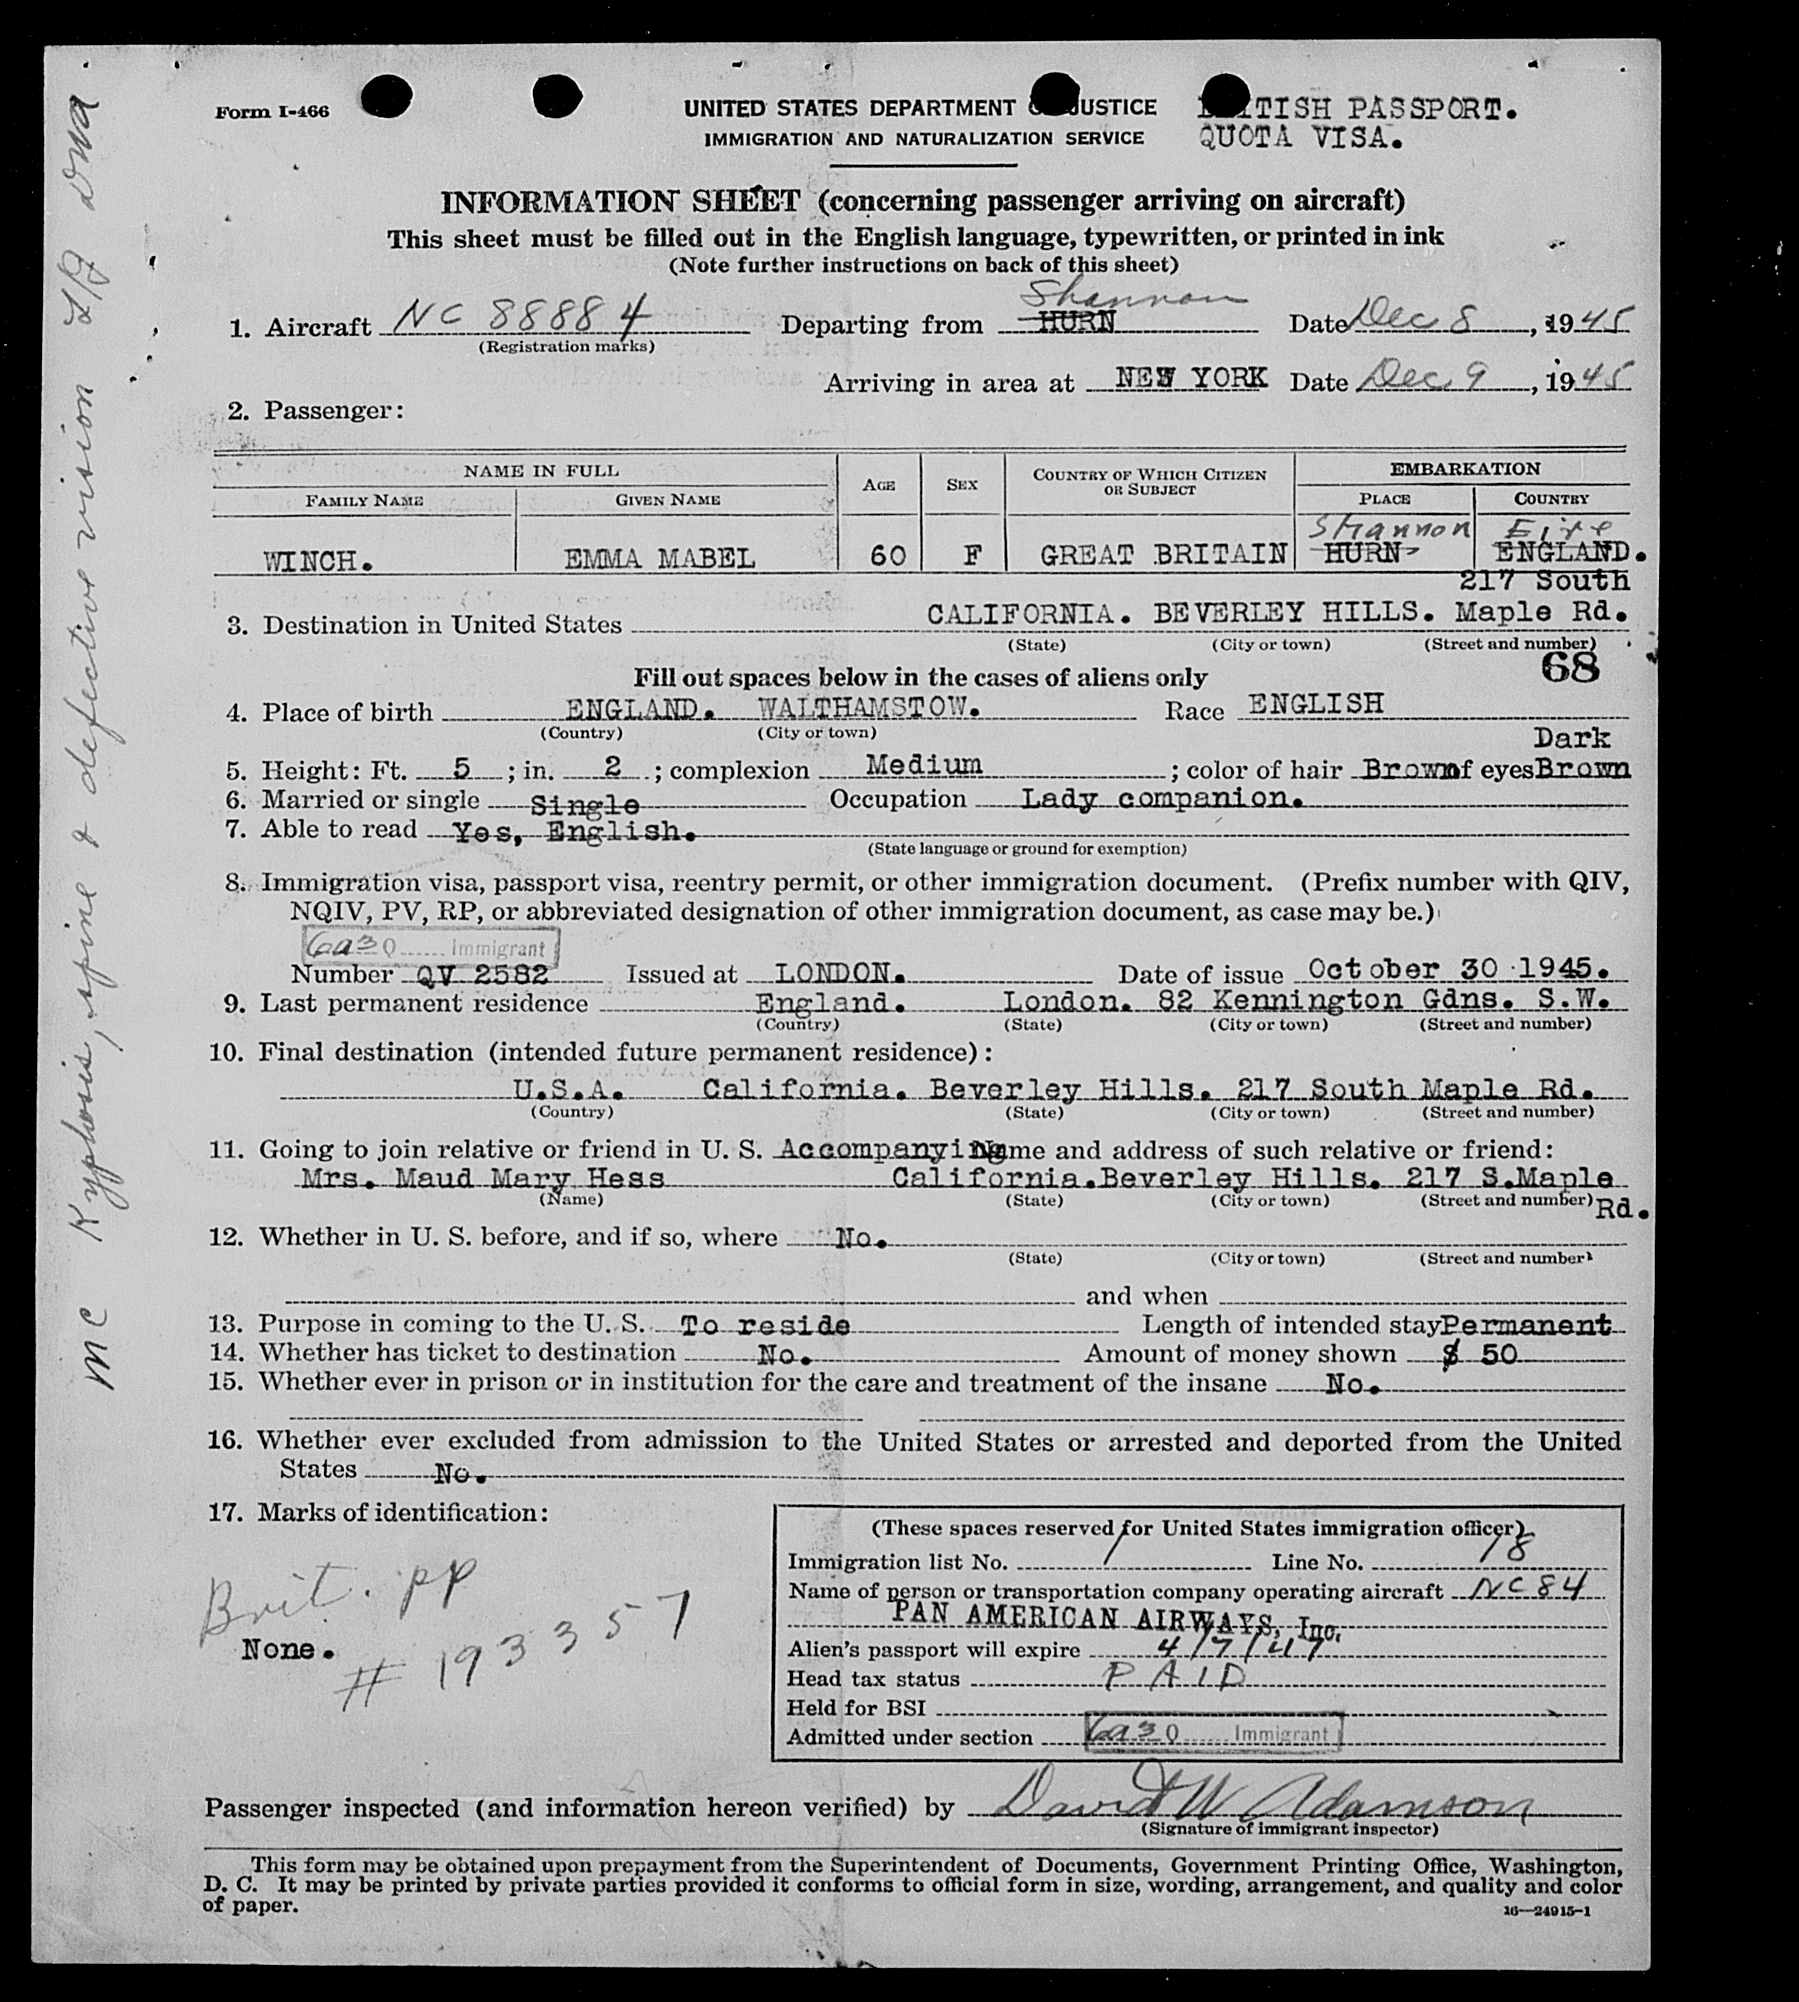 Form I-466
UNITED STATES DEPARTMENT JUSTICE
IMMIGRATION AND NATURALIZATION SERVICE
TISH PASSPORT.
QUOTA VISA.
INFORMATION SHEET (concerning passenger arriving on aircraft)
This sheet must be filled out in the English language, typewritten, or printed in ink
(Note further instructions on back of this sheet)
Shannon
1. Aircraft NC 88884 Departing from HURN Date Dec 8, 1945
(Registration marks)
Arriving in area at NEW YORK Date Dec 9, 1945
2. Passenger:
NAME IN FULL
FAMILY NAME GIVEN NAME
AGE SEX COUNTRY OF WHICH CITIZEN OR SUBJECT
EMBARKATION
PLACE COUNTRY
Shannon Eire
WINCH. EMMA MABEL 60 F GREAT BRITAIN HURN ENGLAND.
217 South
3. Destination in United States CALIFORNIA. BEVERLEY HILLS. Maple Rd.
(State) (City or town) (Street and number)
68
Fill out spaces below in the cases of aliens only
4. Place of birth ENGLAND. WALTHAMSTOW. Race ENGLISH
(Country) (City or town)
Dark
5. Height: Ft. 5; in. 2; complexion Medium; color of hair Brown of eyes Brown
6. Married or single Single Occupation Lady companion.
7. Able to read Yes, English.
(State language or ground for exemption)
8. Immigration visa, passport visa, reentry permit, or other immigration document. (Prefix number with QIV,
NQIV, PV, RP, or abbreviated designation of other immigration document, as case may be.)
6a3 Q Immigrant
Number QV 2582 Issued at LONDON. Date of issue October 30 1945.
9. Last permanent residence England. London. 82 Kennington Gdns. S.W.
(Country) (State) (City or town) (Street and number)
10. Final destination (intended future permanent residence):
U.S.A. California. Beverley Hills. 217 South Maple Rd.
(Country) (State) (City or town) (Street and number)
11. Going to join relative or friend in U. S. Accompanying Name and address of such relative or friend:
Mrs. Maud Mary Hess California.Beverley Hills. 217 S.Maple
(Name) (State) (City or town) (Street and number) Rd.
12. Whether in U. S. before, and if so, where No.
(State) (City or town) (Street and number)
and when
13. Purpose in coming to the U. S. To reside Length of intended stay Permanent
14. Whether has ticket to destination No. Amount of money shown $ 50
15. Whether ever in prison or in institution for the care and treatment of the insane No.
16. Whether ever excluded from admission to the United States or arrested and deported from the United
States No.
17. Marks of identification:
Brit. pp
None.
# 193357
(These spaces reserved for United States immigration officer)
Immigration list No. 1 Line No. 18
Name of person or transportation company operating aircraft NC84
PAN AMERICAN AIRWAYS, Inc.
Alien's passport will expire 4/7/47
Head tax status PAID
Held for BSI
Admitted under section 6a3 Q Immigrant
Passenger inspected (and information hereon verified) by David W Adamson
(Signature of immigrant inspector)
This form may be obtained upon prepayment from the Superintendent of Documents, Government Printing Office, Washington,
D. C. It may be printed by private parties provided it conforms to official form in size, wording, arrangement, and quality and color
of paper.
16—24915-1
MC Kyphosis, spine & defective vision